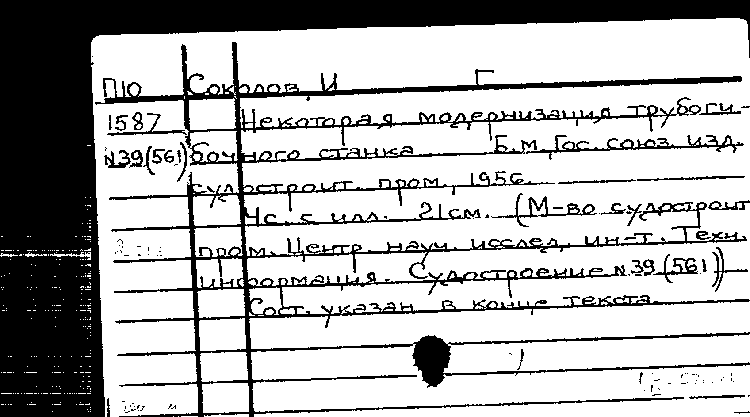 П10 Соколов, И Г
1587 Некоторая модернизация трубоги-
N39(561) бочного станка Б.м., Гос. союз. изд.
судостроит. пром., 1956.
4с. с илл. 21см. (М-во судостроит
пром. Центр. науч. исслед. ин-т. Техн.
информация. Судостроение N39(561))
Сост. указан в конце текста.